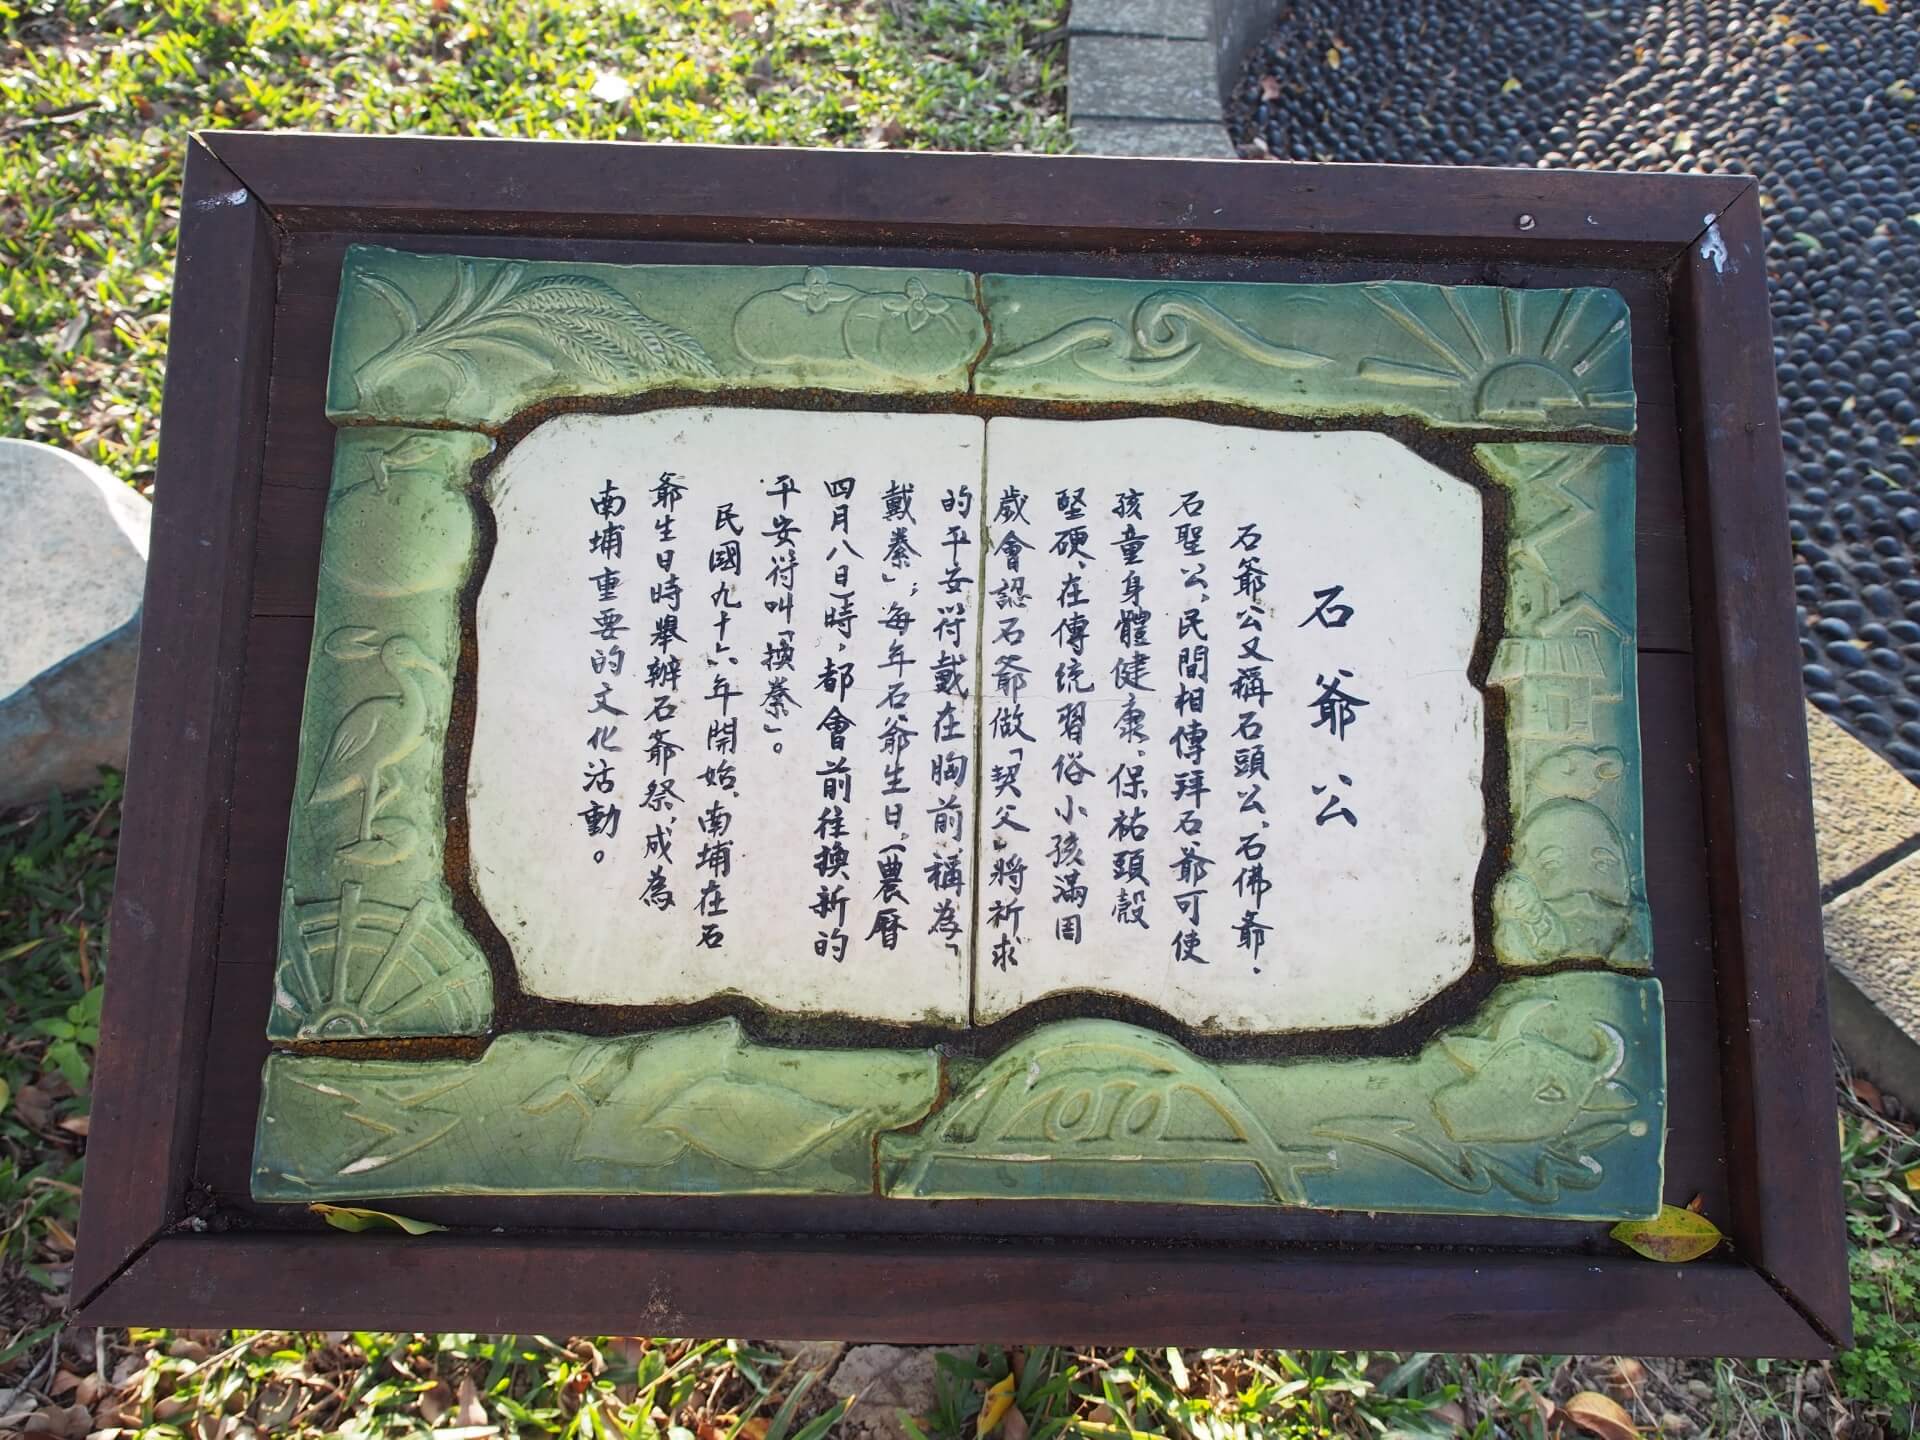 石爺公
石爺公又稱石頭公、石佛爺、
石聖公,民間相傳拜石爺可使
孩童身體健康,保祐頭殼
堅硬、在傳統習俗小孩滿周
歲會認石爺做「契父」將祈求
的平安符戴在胸前稱為「
戴絭」;每年石爺生日,(農曆
四月八日)時,都會前往換新的
平安符叫「換絭」。
民國九十六年開始、南埔在石
爺生日時舉辦石爺祭,成為
南埔重要的文化活動。